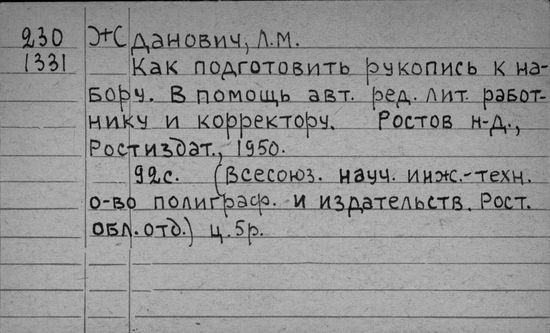 230 Жданович, Л.М.
1331 Как подготовить рукопись к на-
бору. В помощь авт. ред. лит. работ-
нику и корректору. Ростов н-д.,
Ростиздат., 1950.
92с. (Всесоюз. науч. инж.-техн.
о-во полиграф. и издательств. Рост.
обл. отд.) ц. 5р.